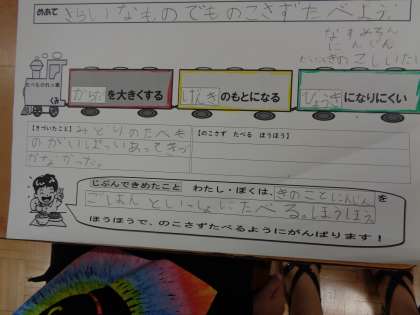 めあて きらいなものでものこさずたべよう
なす めろん
にんじん
たべものれっ車
くみ
からだを大きくする
げんきのもとになる
びょうきになりにくい
【きづいたこと】みどりのたべもの
のがいっぱいあってきづ
かなかった。
【のこさず たべる ほうほう】
じぶんできめたこと わたし・ぼくは、きのことにんじんを
ごはんといっしょにたべる。ほうほう
ほうほうで、のこさずたべるようにがんばります！